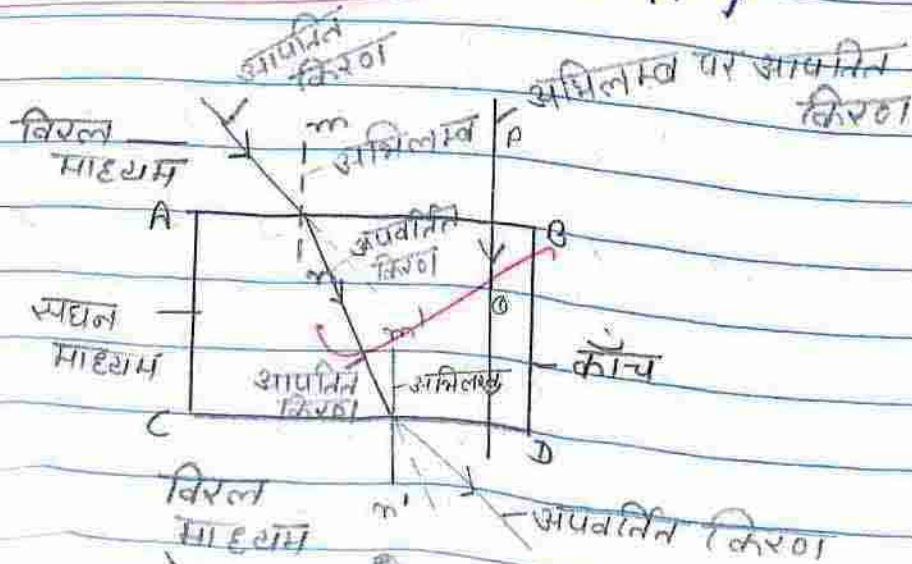 आपतित
किरण
अभिलम्ब पर आपतित
किरण
विरल
माध्यम
m
अभिलम्ब
P
A
B
अपवर्तित
किरण
n
सघन
माध्यम
m'
Q
काँच
आपतित
किरण
अभिलम्ब
C
D
विरल
माध्यम
n'
अपवर्तित किरण